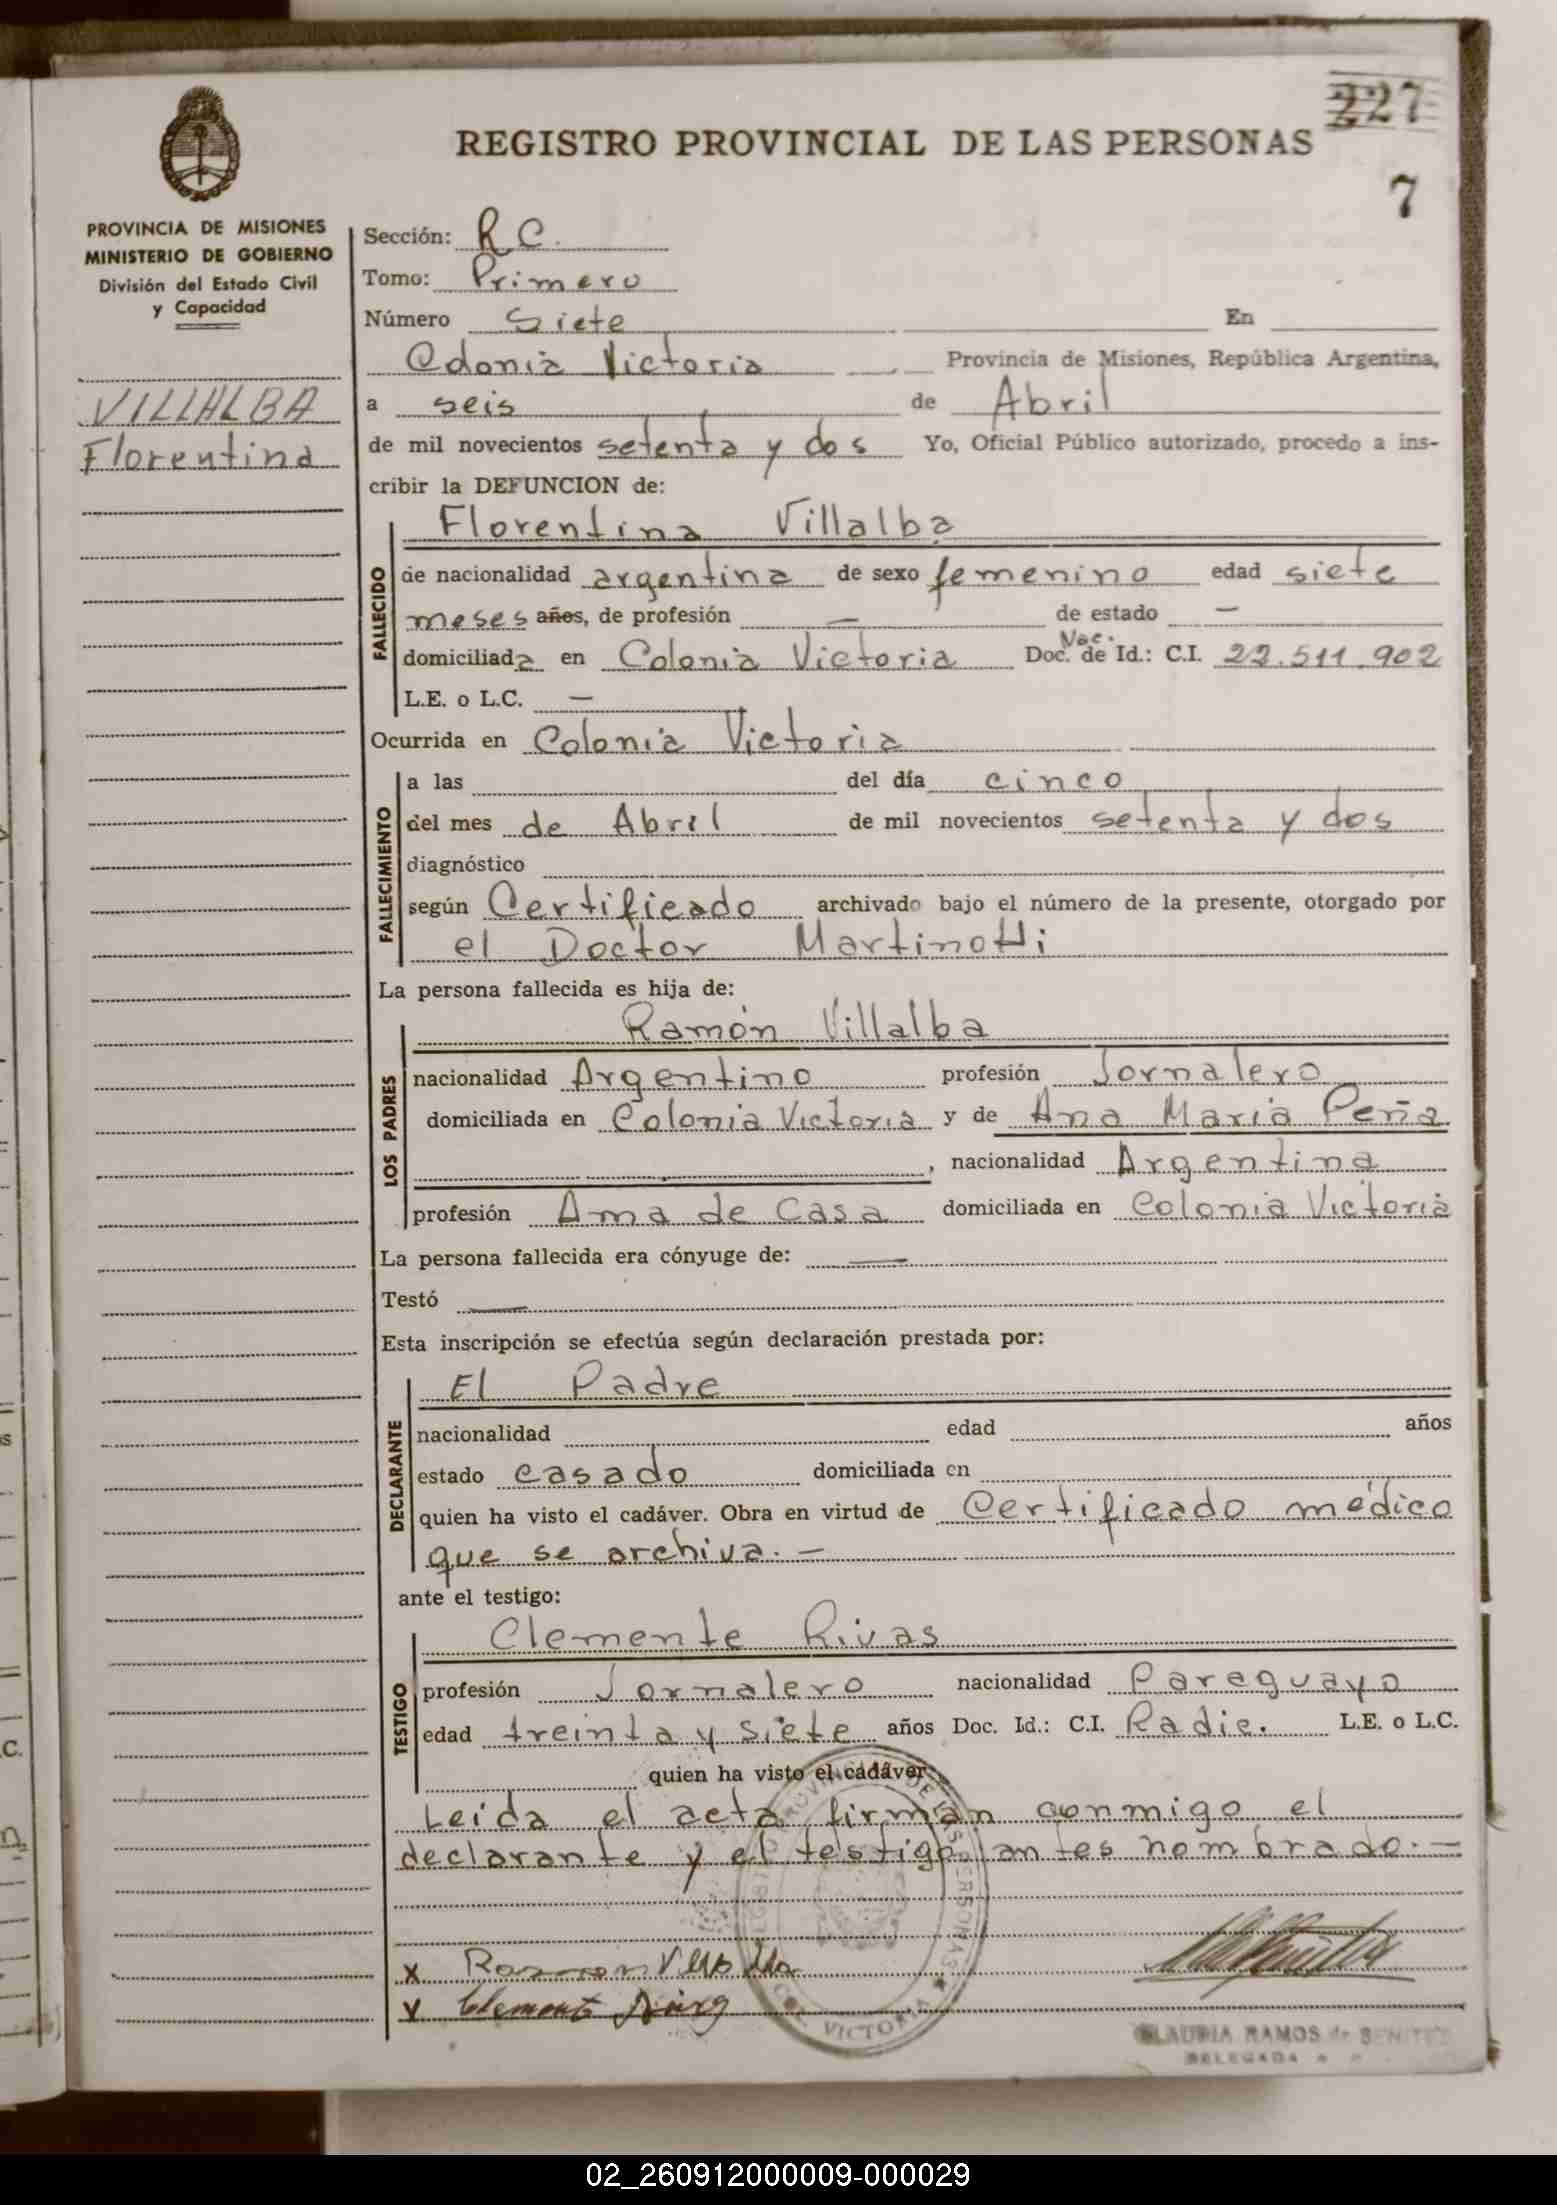 227
REGISTRO PROVINCIAL DE LAS PERSONAS
7
PROVINCIA DE MISIONES
MINISTERIO DE GOBIERNO
División del Estado Civil
y Capacidad
VILLALBA
Florentina
Sección: R C.
Tomo: Primero
Número Siete En
Colonia Victoria Provincia de Misiones, República Argentina,
a seis de Abril
de mil novecientos setenta y dos Yo, Oficial Público autorizado, procedo a ins-
cribir la DEFUNCION de:
Florentina Villalba
FALLECIDO
de nacionalidad argentina de sexo femenino edad siete
meses años, de profesión — de estado —
Nac.
domiciliada en Colonia Victoria Doc. de Id.: C.I. 22.511.902
L.E. o L.C. —
Ocurrida en Colonia Victoria
FALLECIMIENTO
a las del día cinco
del mes de Abril de mil novecientos setenta y dos
diagnóstico
según Certificado archivado bajo el número de la presente, otorgado por
el Doctor Martinotti
La persona fallecida es hija de:
Ramón Villalba
LOS PADRES
nacionalidad Argentino profesión Jornalero
domiciliada en Colonia Victoria y de Ana María Peña
, nacionalidad Argentina
profesión Ama de Casa domiciliada en Colonia Victoria
La persona fallecida era cónyuge de: —
Testó —
Esta inscripción se efectúa según declaración prestada por:
El Padre
DECLARANTE
nacionalidad edad años
estado casado domiciliada en
quien ha visto el cadáver. Obra en virtud de Certificado médico
que se archiva. —
ante el testigo:
Clemente Rivas
TESTIGO
profesión Jornalero nacionalidad Paraguayo
edad treinta y siete años Doc. Id.: C.I. Radic. L.E. o L.C.
quien ha visto el cadáver
Leida el acta firman conmigo el
declarante y el testigo antes nombrado. —
REGISTRO PROVINCIAL DE LAS PERSONAS
COL. VICTORIA
x Ramon Villalba
x Clemente
CLAUDIA RAMOS de BENITEZ
DELEGADA
02_260912000009-000029